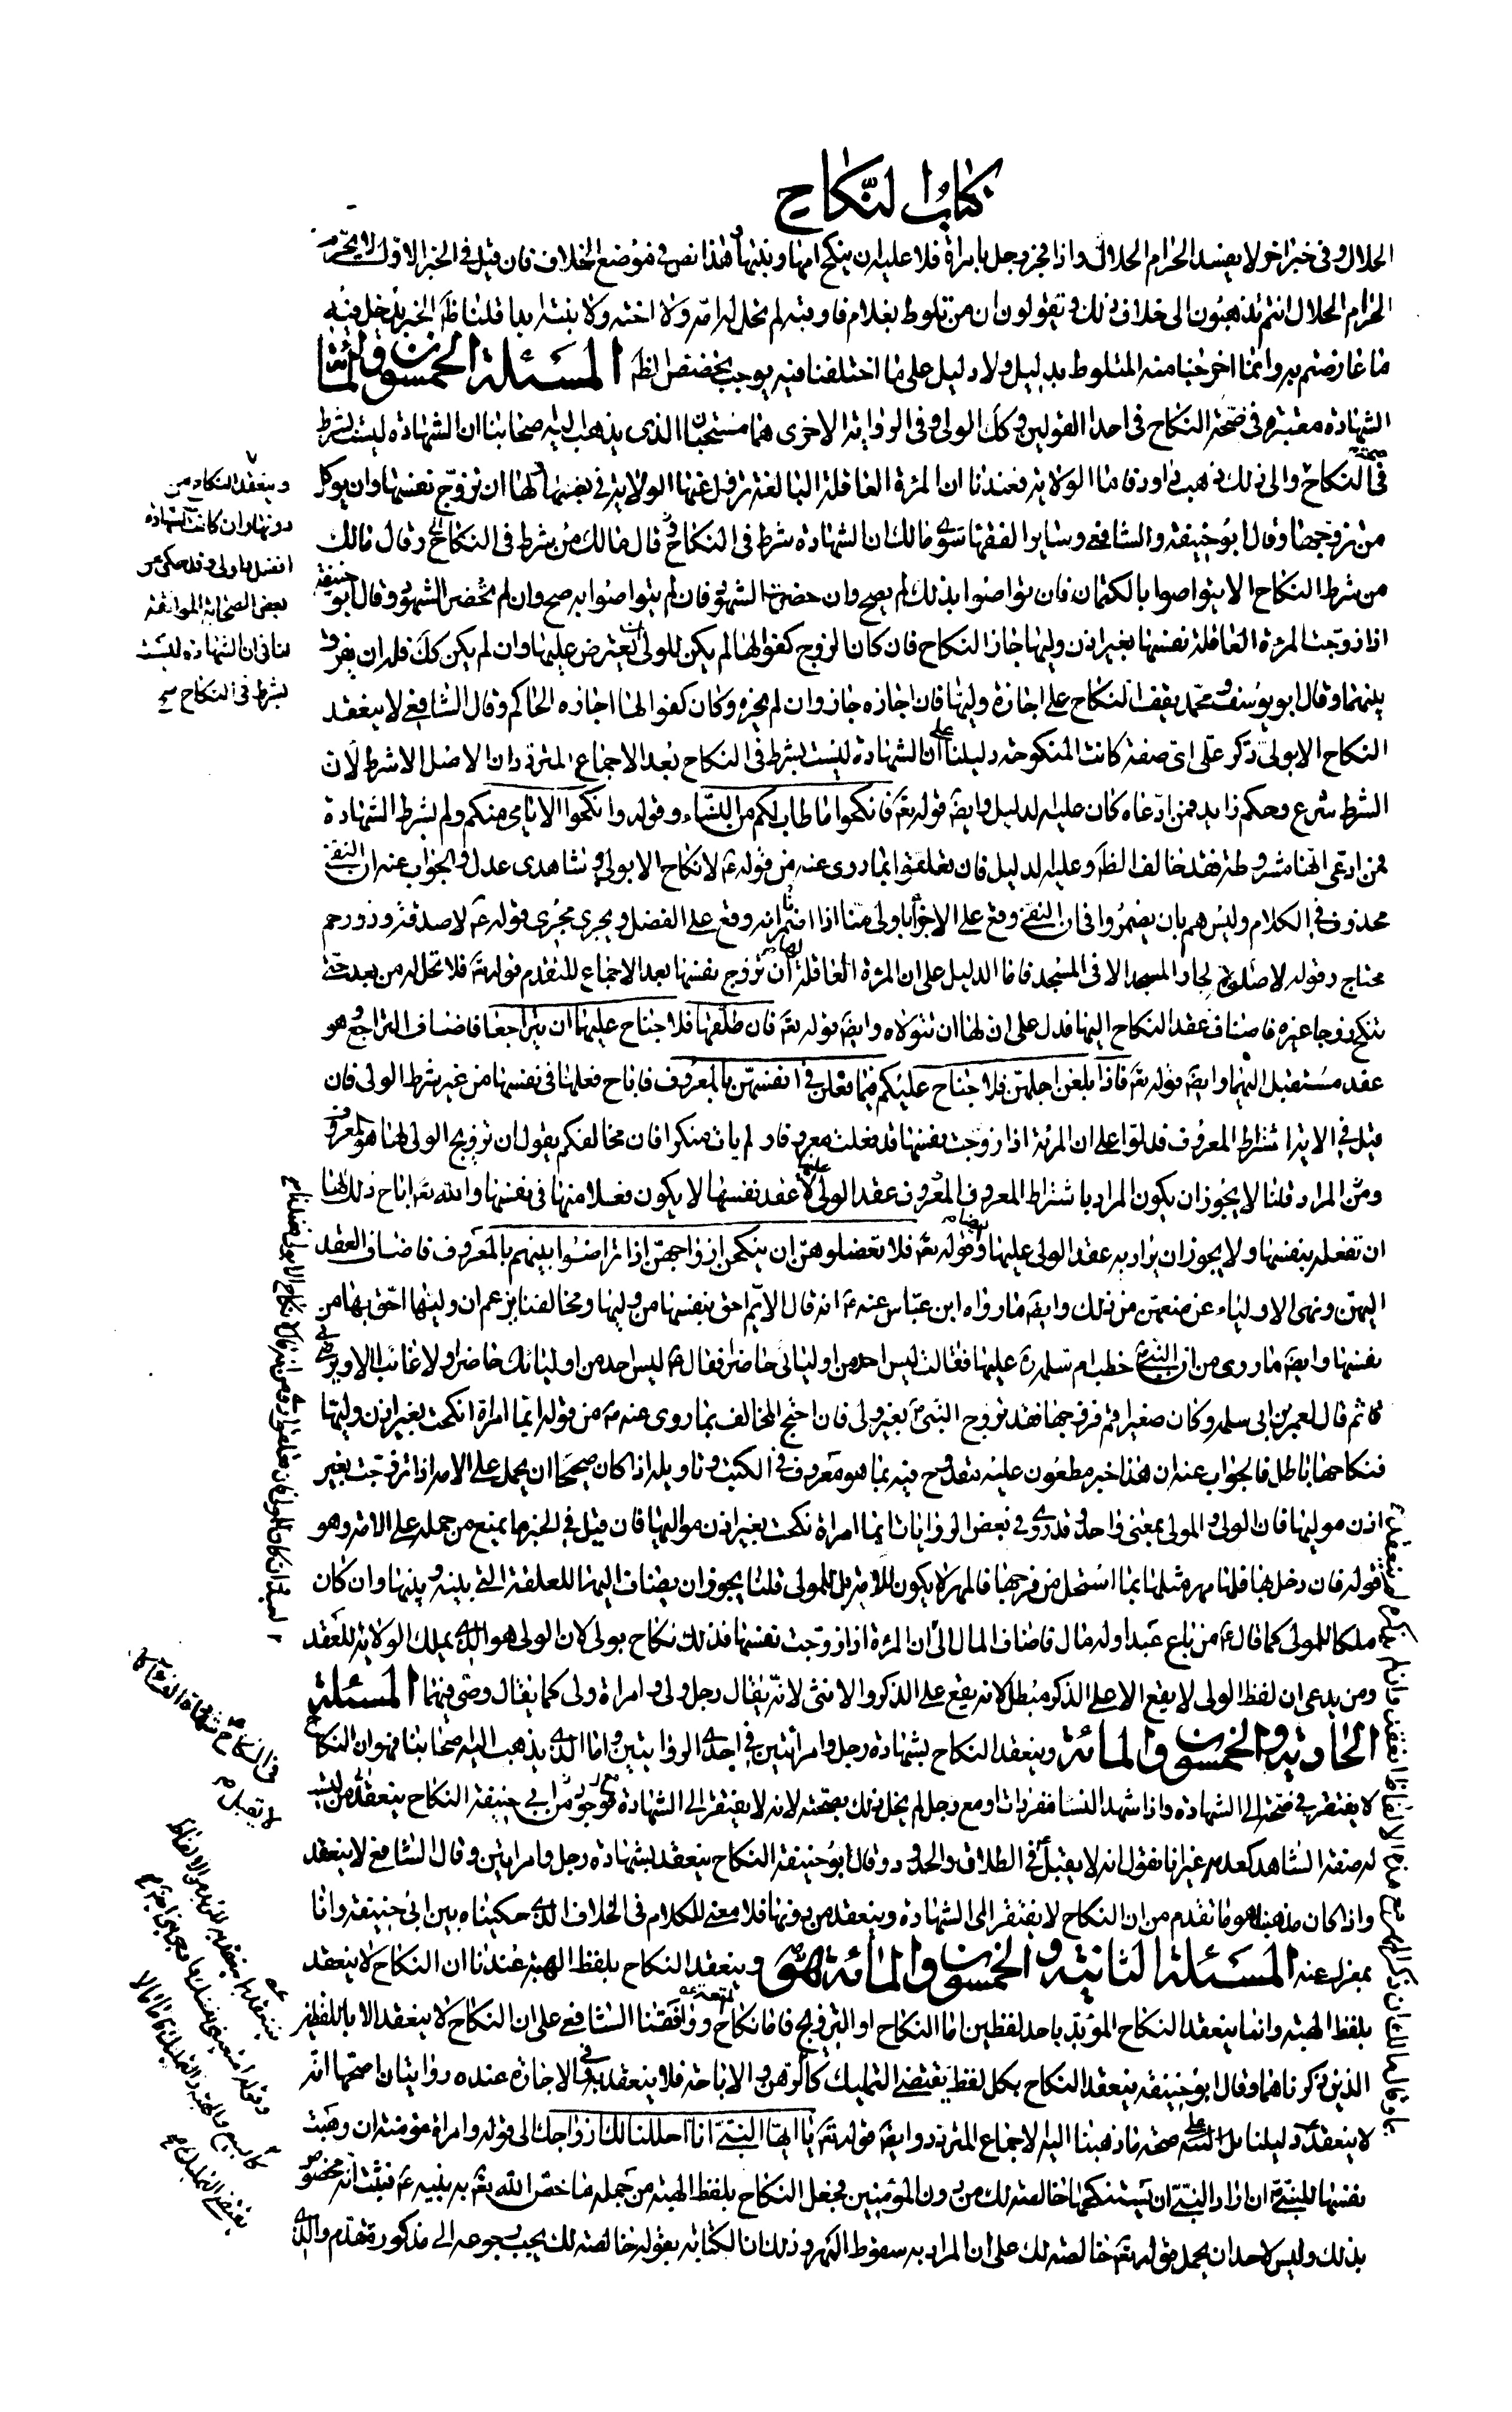 كتاب النكاح
الحلال وفى خبر اخر لا يفسد الحرام الحلال واذا فجر رجل بامراة فلا عليه ان ينكح امها وبنتها وهذا نص فى موضع الخلاف فان قيل فى الخبر الاول لا يحرم
الحرام الحلال انتم تذهبون الى خلاف ذلك وتقولون ان من تلوط بغلام فاوقبه لم تحل له امه ولا اخته ولا بنته ابدا قلنا ظ الخبر يدخل فيه
ما عارضتم به وانما اخرجنا منه المتلوط بدليل ولا دليل على ما اختلفنا فيه يوجب تخصيص الظ المسئلة الخمسون والمائة
الشهادة معتبرة فى صحة النكاح فى احد القولين وكك الولى وفى الرواية الاخرى هما مستحبان الذى يذهب اليه اصحابنا ان الشهادة ليست بشرط
فى النكاح والى ذلك ذهب داود فاما الولاية فعندنا ان المرئة العاقلة البالغة تزول عنها الولاية فى بضعها ولها ان تزوج نفسها وان يوكل
من تزوجها وقال ابو حنيفة والشافعى وساير الفقهاء سوى مالك ان الشهادة شرط فى النكاح وقال مالك من شرط فى النكاح وقال مالك
من شرط النكاح الا يتواصوا بالكتمان فان تواصوا بذلك لم يصح وان حضرت الشهود فان لم يتواصوا به صح وان لم تحضر الشهود وقال ابو حنيفة
اذا زوجت المرئة العاقلة نفسها بغير اذن وليها جاز النكاح فان كان الزوج كفوا لها لم يكن للولى ان يعترض عليها وان لم يكن كك فله ان يفرق
بينهما وقال ابو يوسف ومحمد يقف النكاح على اجازة وليها فان اجازه جاز وان لم يجزه وكان كفوا لها اجازه الحاكم وقال الشافعى لا ينعقد
النكاح الا بولى ذكر على اى صفة كانت المنكوحة دليلنا على ان الشهادة ليست بشرط فى النكاح بعد الاجماع المتردد ان الاصل الا شرط لان
الشرط شرع وحكم زايد فمن ادعاه كان عليه الدليل وايضه قوله تعه فانكحوا ما طاب لكم من النساء وقوله وانكحوا الايامى منكم ولم يشرط الشهادة
فمن ادعى انها مشروطة فقد خالف الظ وعليه الدليل فان تعلقوا بما روى عنه من قوله ع لا نكاح الا بولى وشاهدى عدل والجواب عنه ان النفى
محذوف فى الكلام وليس هم بان يضمروا فى ان النفى وقع على الاجزاء باولى منا اذا اضمرنا انه وقع على الفضل ويجرى مجرى قوله ع لا صدقة وذو رحم
محتاج وقوله لا صلوة لجار المسجد الا فى المسجد فاما الدليل على ان المرئة العاقلة لها ان تزوج نفسها بعد الاجماع المتقدم قوله تعه فلا تحل له من بعد حتى
تنكح زوجا غيره فاضاف عقد النكاح اليها فدل على ان لها ان تتولاه وايضه قوله تعه فان طلقها فلا جناح عليهما ان يتراجعا فاضاف التراجع وهو
عقد مستقبل اليهما وايضه قوله تعه فاذا بلغن اجلهن فلا جناح عليكم فيما فعلن فى انفسهن بالمعروف فاباح فعلها فى نفسها من غير شرط الولى فان
قيل فى الاية اشتراط المعروف فدلوا على ان المرئة اذا زوجت نفسها قد فعلت معروفا ولم يات منكرا فان مخالفكم يقول ان تزويج الولى لها هو المعروف
ومن المراد قلنا لا يجوز ان يكون المراد باشتراط المعروف المعروف عقد الولى عليها لان عقد نفسها لا يكون فعلا منها فى نفسها والله تعه اباح ذلك لها
ان تفعله بنفسها ولا يجوز ان يراد به عقد الولى عليها وايضا قوله تعه فلا تعضلوهن ان ينكحن ازواجهن اذا تراضوا بينهم بالمعروف فاضاف العقد
اليهن ونهى الاولياء عن منعهن من ذلك وايضه ما رواه ابن عباس عنه ع انه قال الايم احق بنفسها من وليها ومخالفنا يزعم ان وليها احق بها من
نفسها وايضه ما روى من ان النبى ص خطب ام سلمة رة عليها فقالت ليس احد من اوليائى حاضرا فقال ع ليس احد من اوليائك حاضر ولا غائب الا ويرضى
ثم قال لعمر بن ابى سلمة وكان صغيرا قم فزوجها فقد تزوج النبى ص بغير ولى فان احتج المخالف بما روى عنه ع من قوله ايما امراة انكحت بغير اذن وليها
فنكاحها باطل فالجواب عنه ان هذا خبر مطعون عليه مقدوح فيه بما هو معروف فى الكتب وتاويله اذا كان صحيحا ان يحمل على الامة اذا تزوجت بغير
اذن موليها فان الولى والمولى بمعنى واحد وقد روى فى بعض الروايات ايما امراة نكحت بغير اذن مواليها فان قيل فى الخبر ما يمنع من حمله على الامة وهو
قوله فان دخل بها فلها مهر مثلها بما استحل من فرجها فالمهر لا يكون للامة بل للمولى قلنا يجوز ان يضاف اليها للعلقة التى بينه وبينها وان كان
ملكا للمولى كما قال ع من باع عبدا وله مال فاضاف المال الى ان المرئة اذا زوجت نفسها فذلك نكاح بولى لان الولى هو الذى يملك الولاية للعقد
ومن يدعى ان لفظ الولى لا يقع الا على الذكر مبطل لانه يقع على الذكر والانثى لانه يقال رجل ولى وامراة ولى كما يقال وصى فيهما المسئلة
الحادية والخمسون والمائة وينعقد النكاح بشهادة رجل وامراتين فى احدى الروايتين واما الذى يذهب اليه اصحابنا فهو ان النكاح
لا يفتقر فى صحته الى الشهادة واذا شهد النساء مفردات او مع رجل لم يخل ذلك بصحته لانه لا يفتقر الى الشهادة ابى حنيفة النكاح ينعقد من ليست
له صفة الشاهد كعدم غيرنا نقول انه لا يقبل فى الطلاق والحدود وقال ابو حنيفة النكاح ينعقد بشهادة رجل وامراتين وقال الشافعى لا ينعقد
واذا كان مذهبنا هو ما تقدم من ان النكاح لا يفتقر الى الشهادة وينعقد من دونها فلا معنى للكلام فى الخلاف الذى حكيناه بين ابى حنيفة وانا
بمعزل عنه المسئلة الثانية والخمسون والمائة وينعقد النكاح بلفظ الهبة عندنا ان النكاح لا ينعقد
بلفظ الهبة وانما ينعقد النكاح المؤبد باحد لفظين اما النكاح او التزويج فاما نكاح المتعة ووافقنا الشافعى على ان النكاح لا ينعقد الا باللفظين
الذين ذكرناهما وقال ابو حنيفة ينعقد النكاح بكل لفظ يقتضى التمليك كالرهن والاباحة فلا ينعقد به وفى الاجازة عنده روايتان اصحهما انه
لا ينعقد دليلنا على صحة ما ذهبنا اليه الاجماع المتردد وايضه قوله تعه يا ايها النبى انا احللنا لك ازواجك الى قوله وامراة مؤمنة ان وهبت
نفسها للنبى ان اراد النبى ان يستنكحها خالصة لك من دون المؤمنين فجعل النكاح بلفظ الهبة من جملة ما خص الله تعه به نبيه ع فثبت انه مخصوص
بذلك وليس لاحد ان يحمل قوله تعه خالصة لك على ان المراد به سقوط المهر وذلك ان الكناية بقوله خالصة لك يجب رجوعه الى مذكور متقدم والذى
وينعقد النكاح من
دونها وان كانت الشهادة
افضل واولى وقد حكى عن
بعض الصحابة الموافقة
لنا فى ان الشهادة ليست
بشرط فى النكاح صح